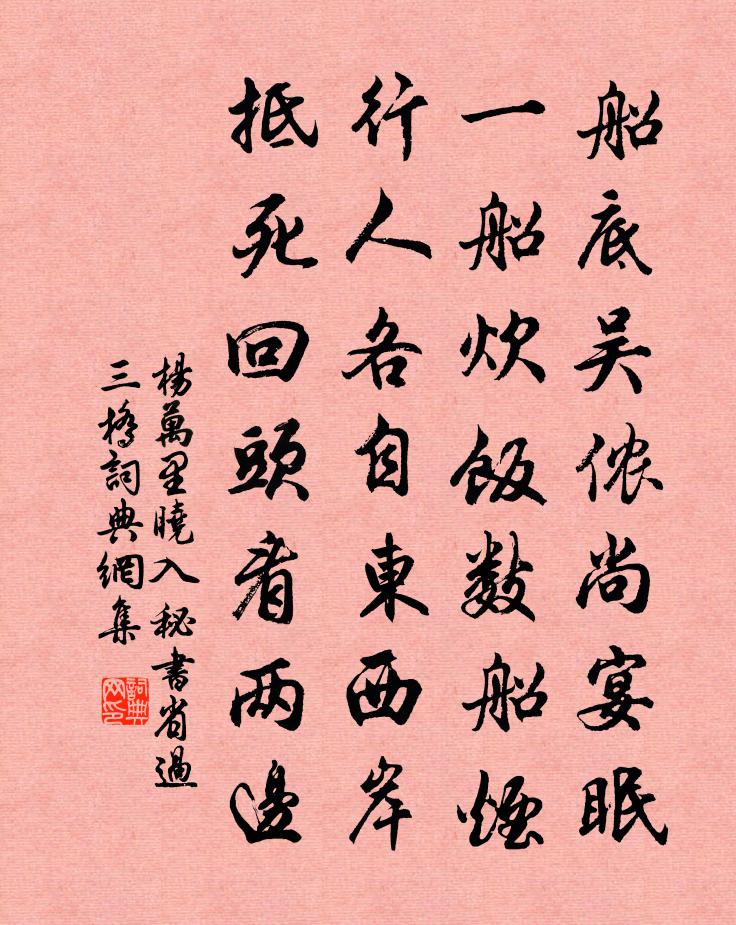 船底吴侬尚宴眠
一船炊飯數船煙
行人各自東西岸
抵死回頭看两邊
楊萬里曉入秘書省過
三橋詞典網集
詞典
网印